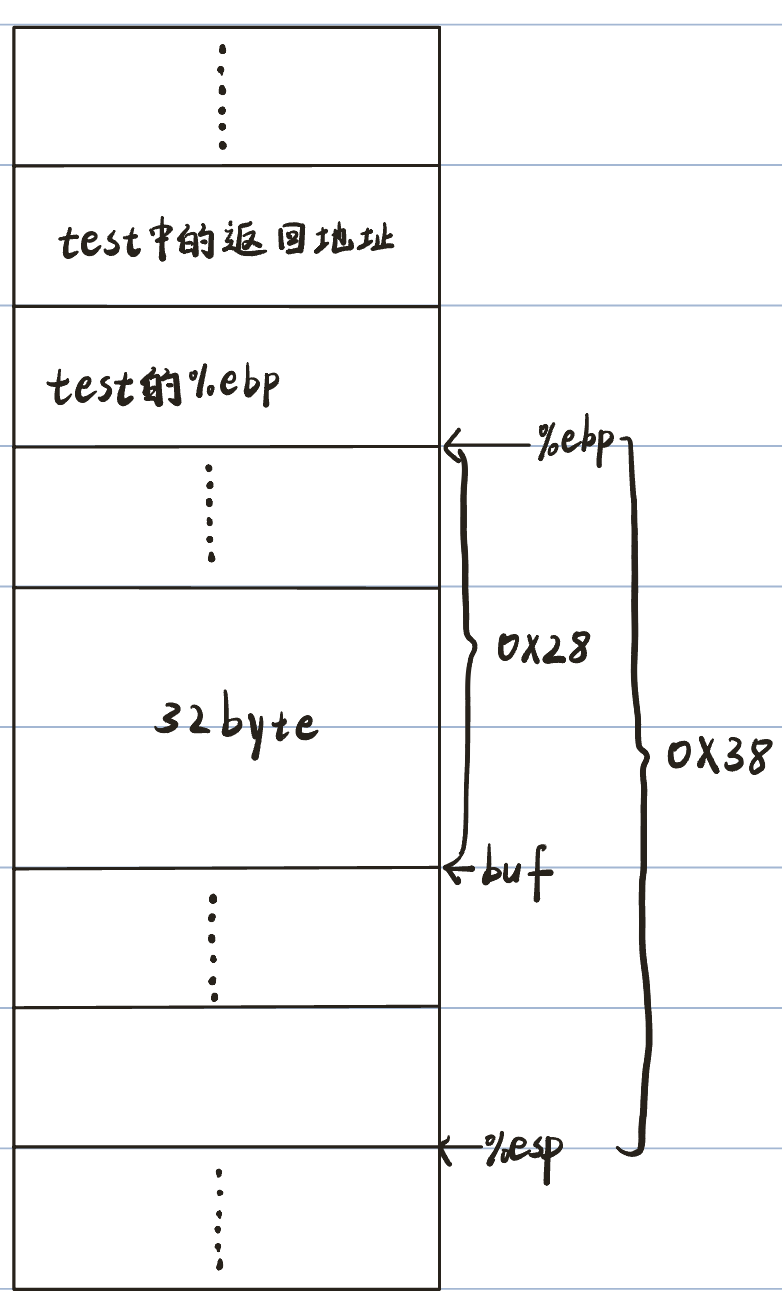 test中的返回地址
test的%ebp
%ebp
0X28
32byte
0X38
buf
%esp